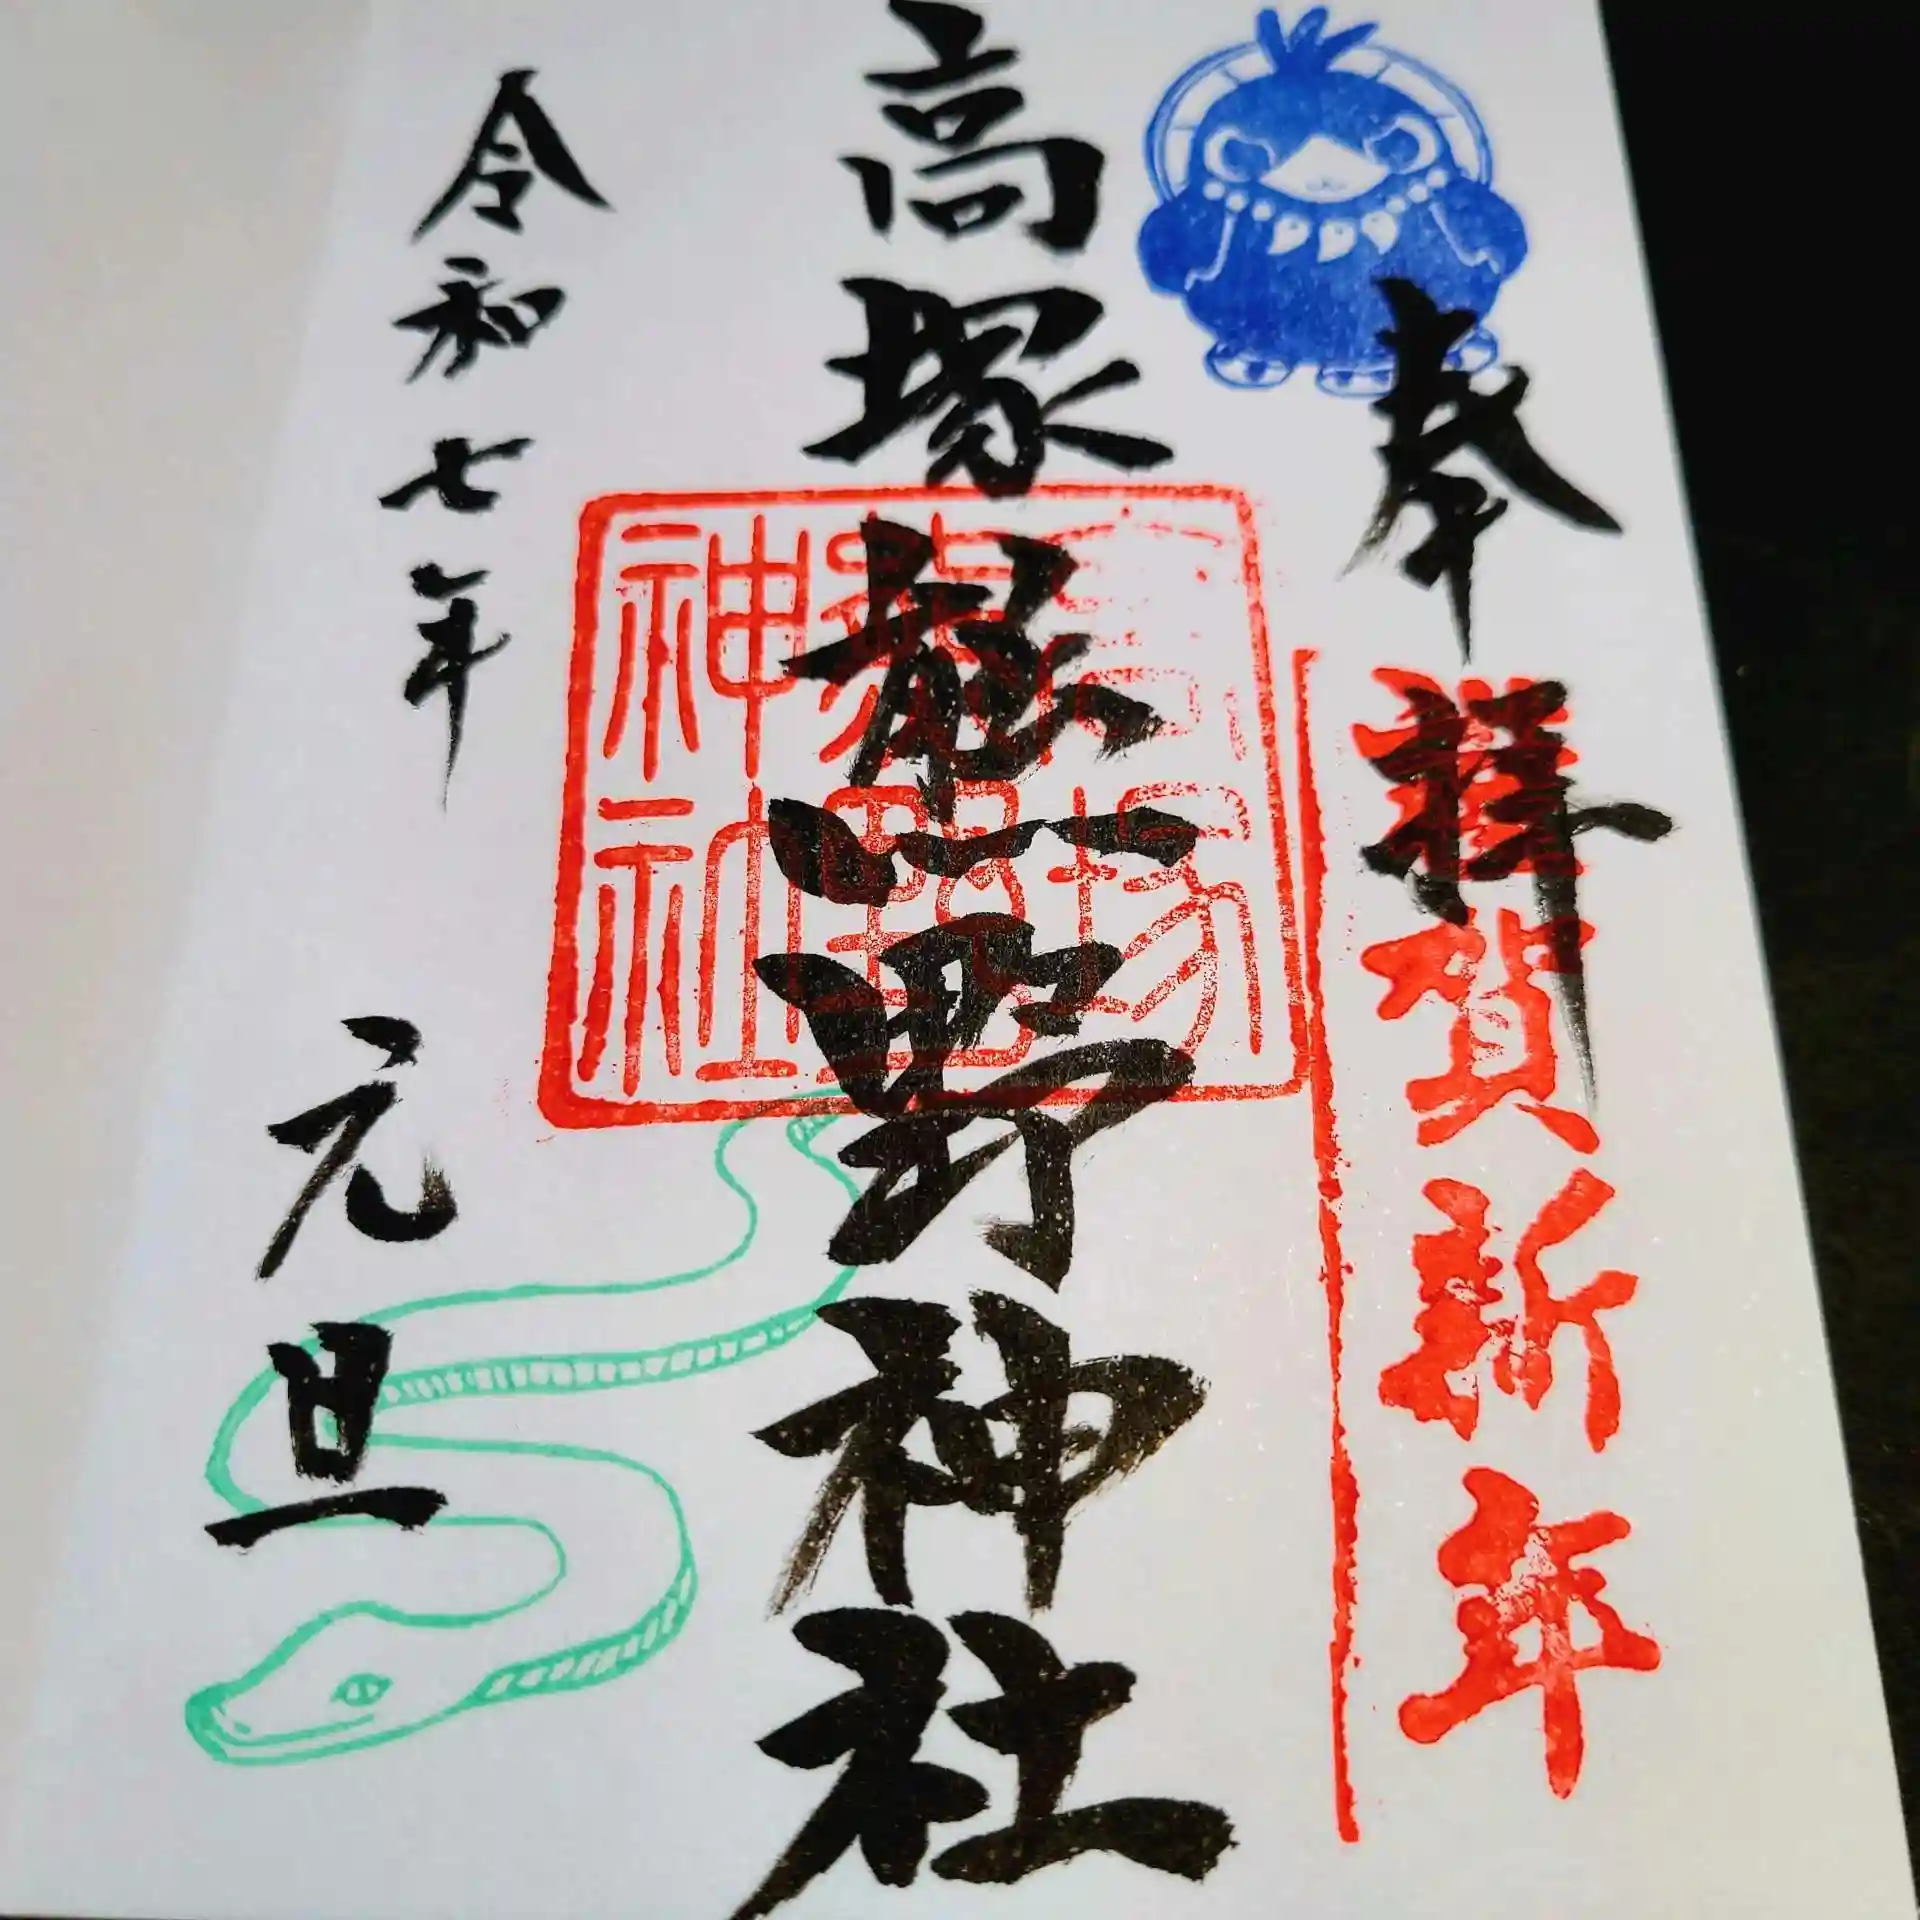 奉拝
謹賀新年
高塚熊野神社
高塚
熊野
神社
令和七年 元旦